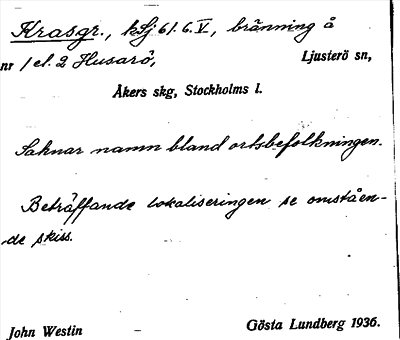 Krasgr., kSj 61.6.V, bränning å
nr 1 el. 2 Husarö, Ljusterö sn,
Åkers skg, Stockholms l.
Saknar namn bland ortsbefolkningen.
Beträffande lokaliseringen se omståen-
de skiss.
John Westin Gösta Lundberg 1936.